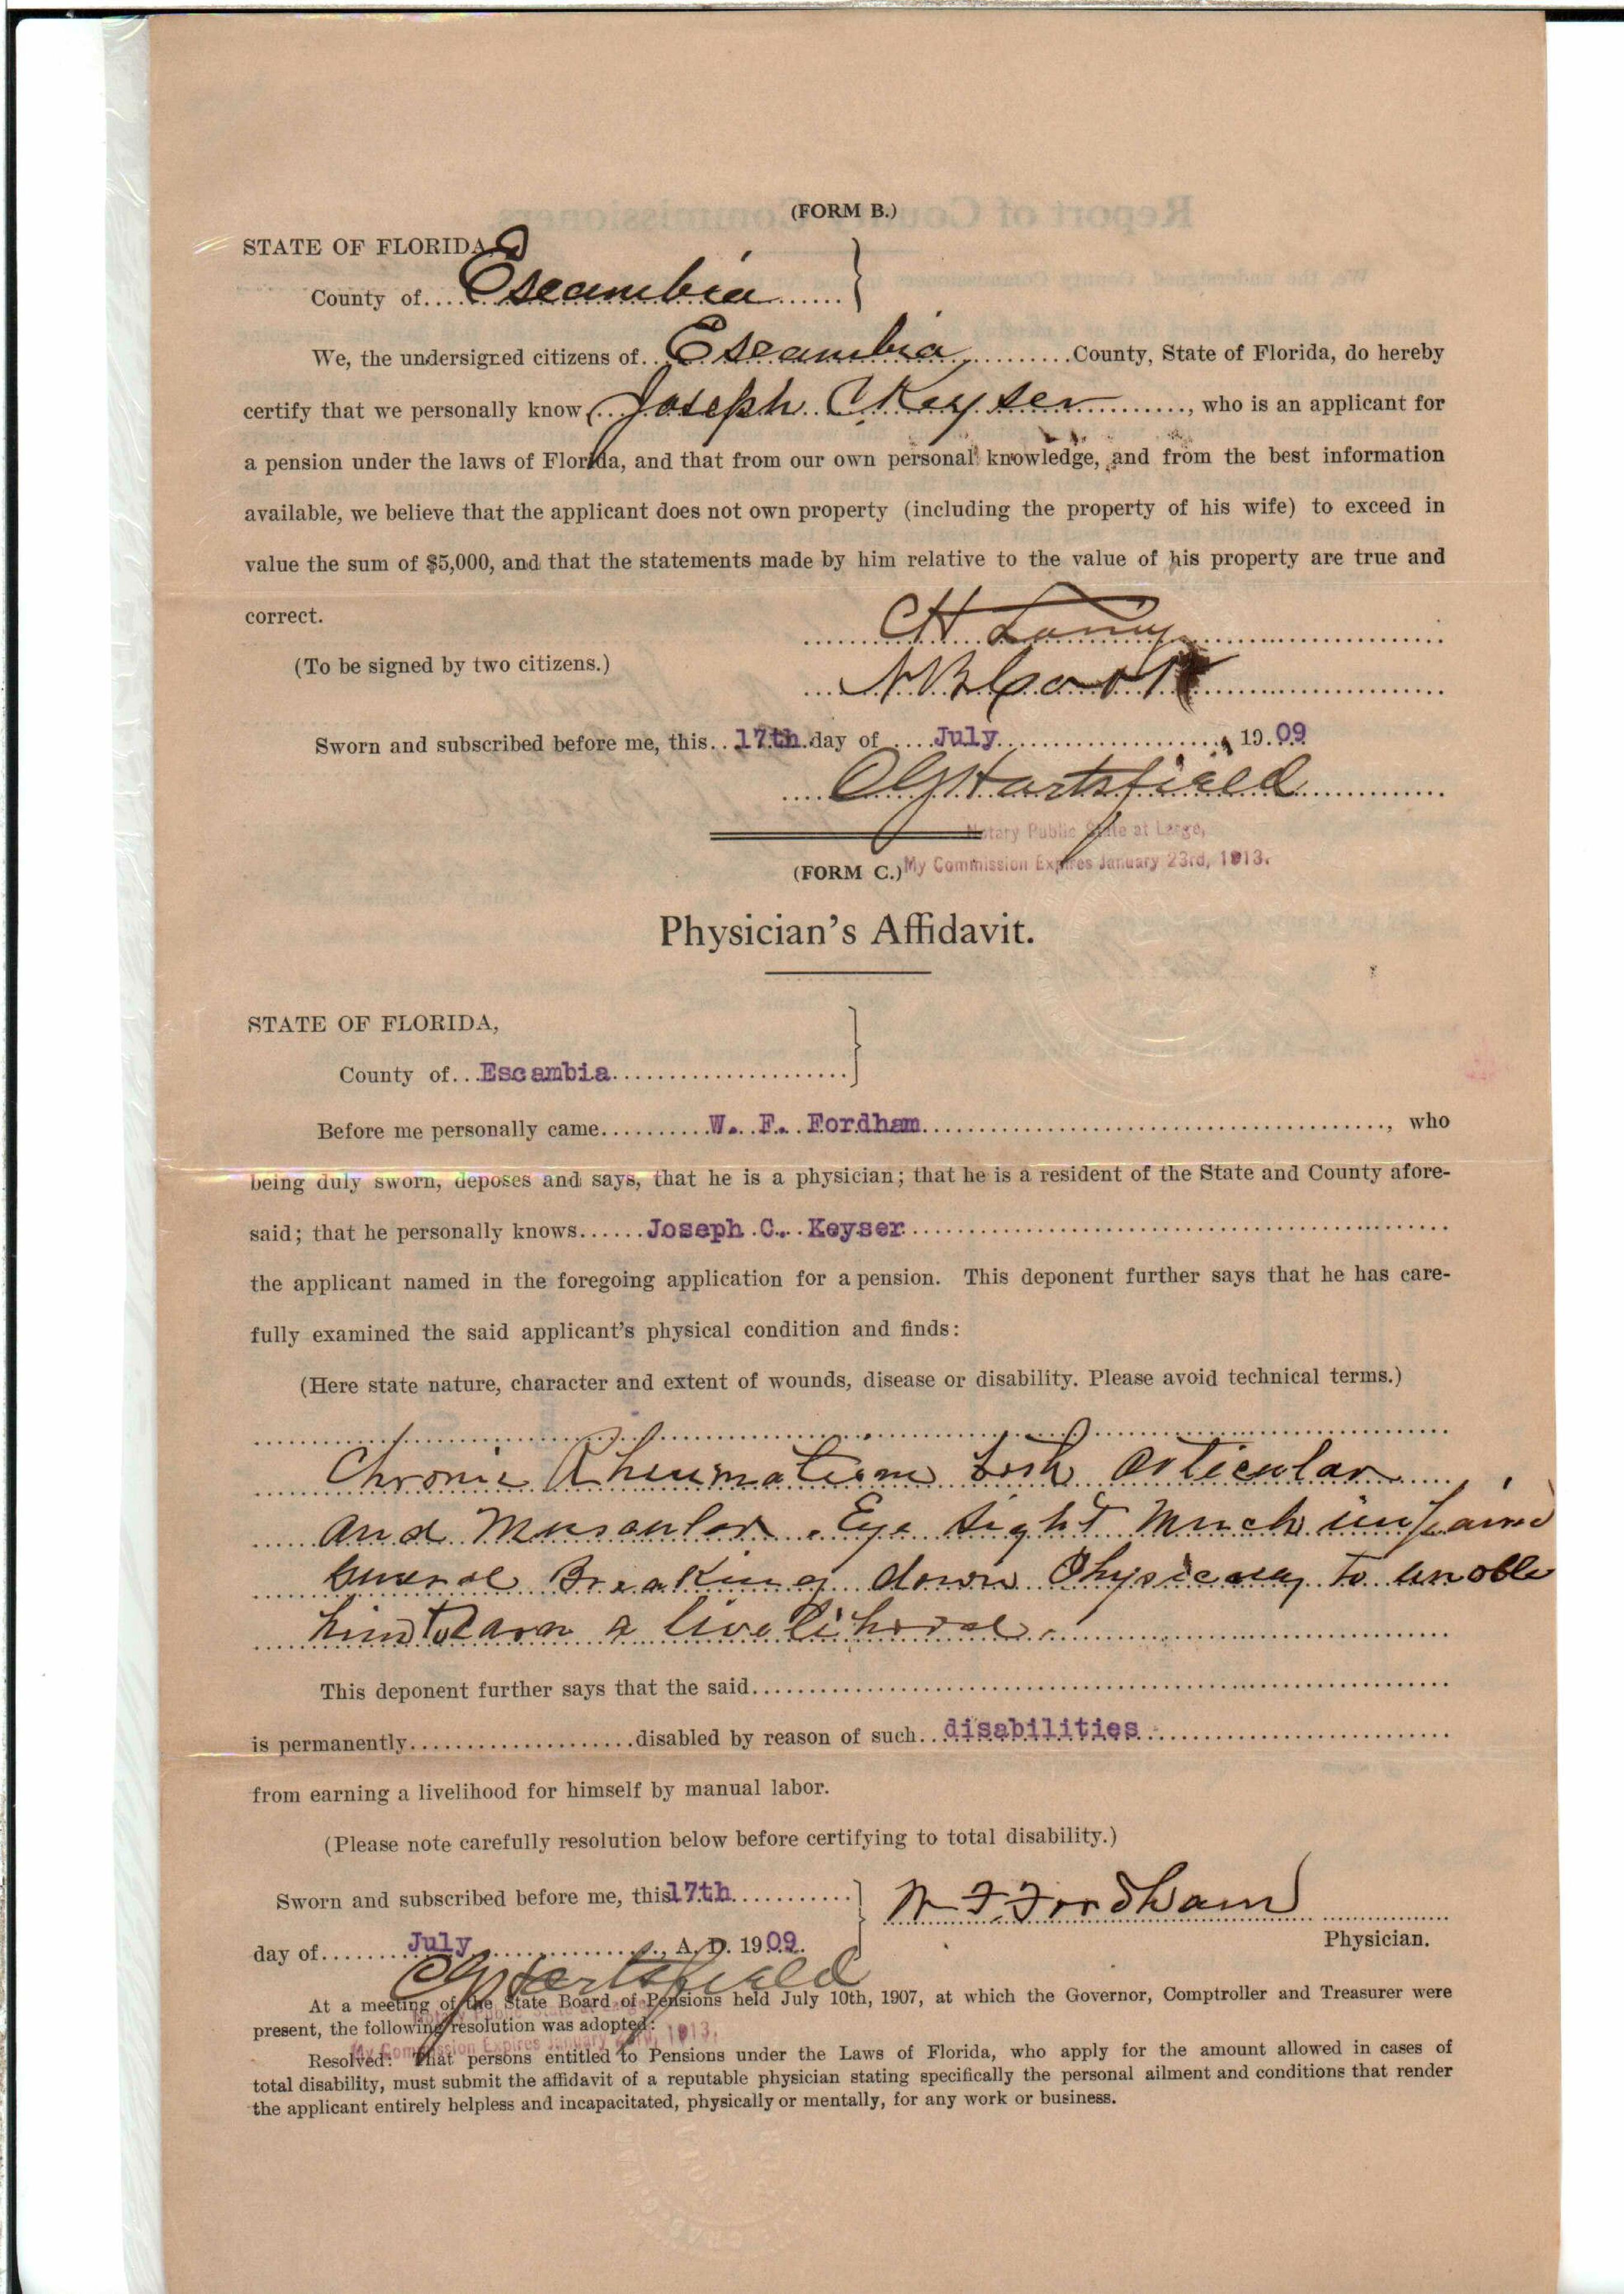 (FORM B.)
STATE OF FLORIDA,
County of Escambia
We, the undersigned citizens of Escambia County, State of Florida, do hereby
certify that we personally know Joseph C Keyser, who is an applicant for
a pension under the laws of Florida, and that from our own personal knowledge, and from the best information
available, we believe that the applicant does not own property (including the property of his wife) to exceed in
value the sum of $5,000, and that the statements made by him relative to the value of his property are true and
correct.
C H
(To be signed by two citizens.)
Cook
Sworn and subscribed before me, this 17th day of July, 1909
Hartsfield
Notary Public State at Large,
My Commission Expires January 23rd, 1913.
(FORM C.)
Physician's Affidavit.
STATE OF FLORIDA,
County of Escambia
Before me personally came W. F. Fordham, who
being duly sworn, deposes and says, that he is a physician; that he is a resident of the State and County afore-
said; that he personally knows Joseph C. Keyser
the applicant named in the foregoing application for a pension. This deponent further says that he has care-
fully examined the said applicant's physical condition and finds:
(Here state nature, character and extent of wounds, disease or disability. Please avoid technical terms.)
Chronic Rheumatism both articular
and Muscular. Eye sight Much impaired
General Breaking down Physically to
him to earn a livelihood.
This deponent further says that the said
is permanently disabled by reason of such disabilities
from earning a livelihood for himself by manual labor.
(Please note carefully resolution below before certifying to total disability.)
Sworn and subscribed before me, this 17th
W F Fordham
day of July, A. D. 1909.
Physician.
Hartsfield
At a meeting of the State Board of Pensions held July 10th, 1907, at which the Governor, Comptroller and Treasurer were
present, the following resolution was adopted:
My Commission Expires January 23rd, 1913.
Resolved: That persons entitled to Pensions under the Laws of Florida, who apply for the amount allowed in cases of
total disability, must submit the affidavit of a reputable physician stating specifically the personal ailment and conditions that render
the applicant entirely helpless and incapacitated, physically or mentally, for any work or business.